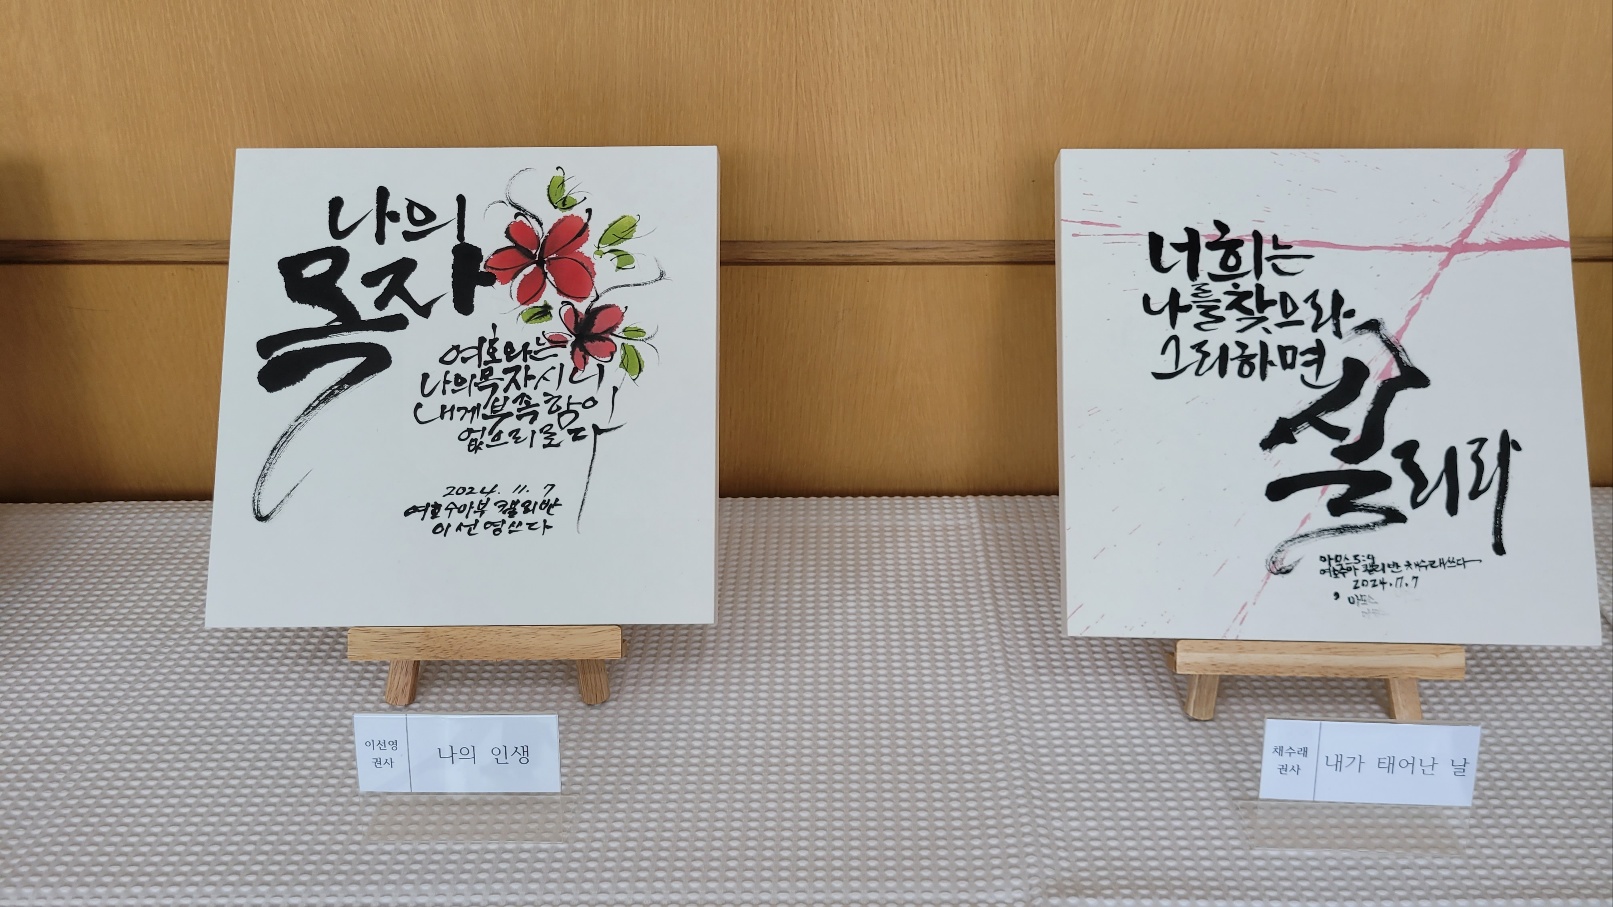 나의
목자
여호와는
나의 목자시니
내게 부족함이
없으리로다
2024. 11. 7
여호수아부 캘리반
이선영쓰다
이선영
권사
나의 인생
너희는
나를 찾으라.
그리하면
살리라
여호수아 캘리반 채수래쓰다
2024.11.7
채수래
권사
내가 태어난 날